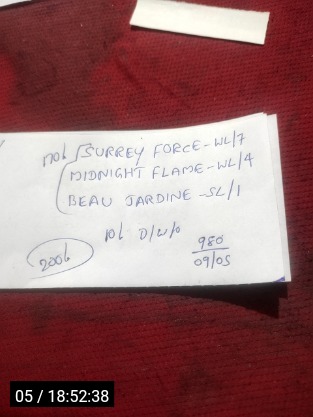 170L SURREY FORCE-WL/7
MIDNIGHT FLAME-WL/4
BEAU JARDINE-SL/1
10L D/W/O
200L
980
09/05
05 / 18:52:38